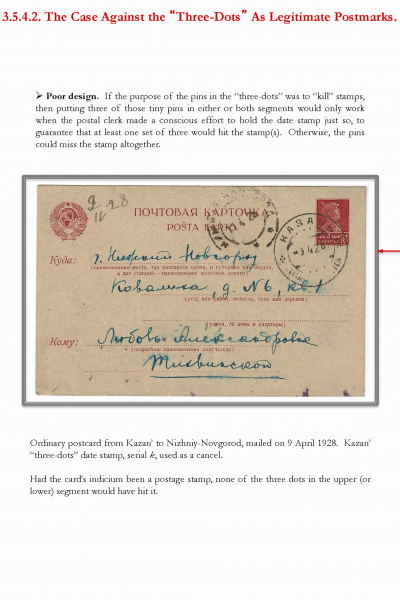 3.5.4.2. The Case Against the “Three-Dots” As Legitimate Postmarks.
➢ Poor design. If the purpose of the pins in the “three-dots” was to “kill” stamps,
then putting three of those tiny pins in either or both segments would only work
when the postal clerk made a conscious effort to hold the date stamp just so, to
guarantee that at least one set of three would hit the stamp(s). Otherwise, the pins
could miss the stamp altogether.
9 28
IV
ПОЧТОВАЯ КАРТОЧКА
POŞTA
КАЗАНЬ
Куда: г. Нижний Новгород
(наименование места, где находится почта, и губернии или округа,
Ковалиха, д. №6, кв 1
Кому: Любовь Александровне
(подробное наименование получателя)
Тихвинской
Ordinary postcard from Kazan’ to Nizhniy-Novgorod, mailed on 9 April 1928. Kazan’
“three-dots” date stamp, serial k, used as a cancel.
Had the card’s indicium been a postage stamp, none of the three dots in the upper (or
lower) segment would have hit it.